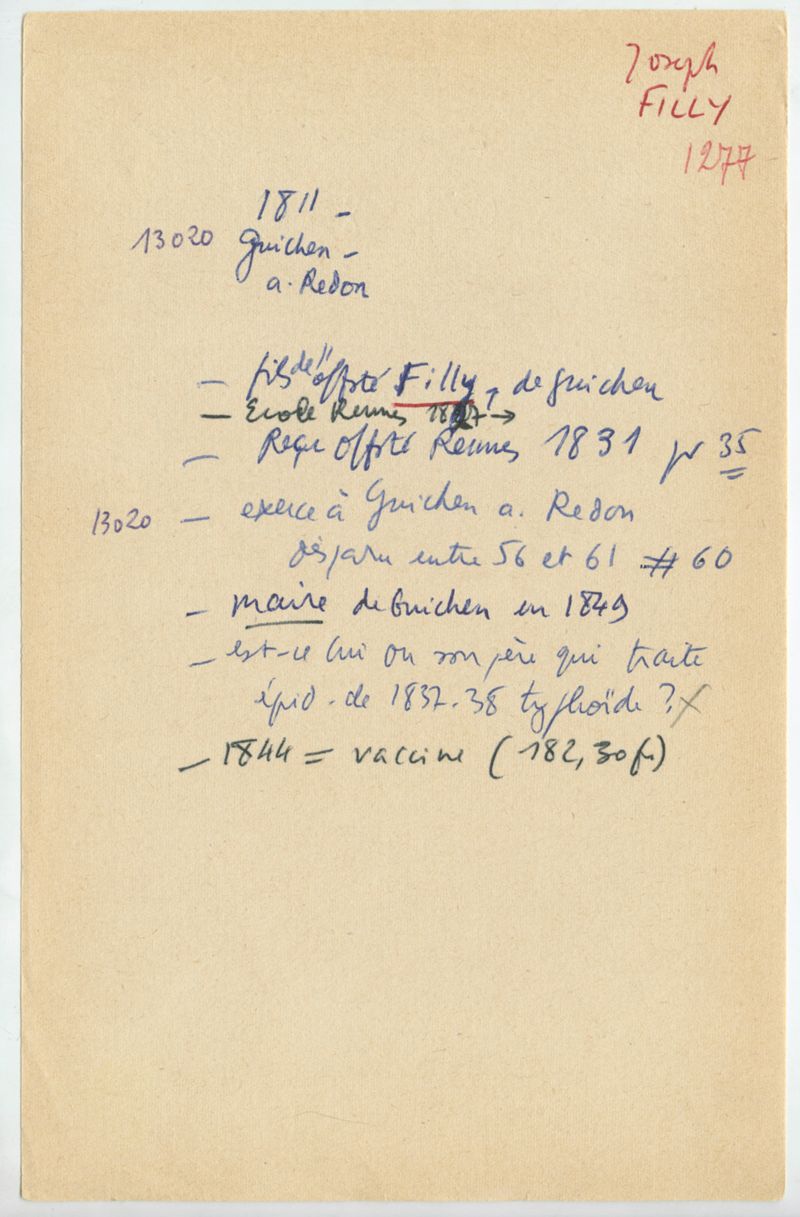 Joseph
FILLY
1277
1811 -
13020 Guichen -
a. Redon
- fils de l'offsté Filly, de Guichen
- Ecole Rennes 1827 →
- Reçu offsté Rennes 1831 pr 35
13020 - exerce à Guichen a. Redon
disparu entre 56 et 61 # 60
- maire de Guichen en 1849
- est-ce lui ou son père qui traite
épid. de 1837-38 typhoïde ? X
- 1844 = vaccine (182,30 fr)